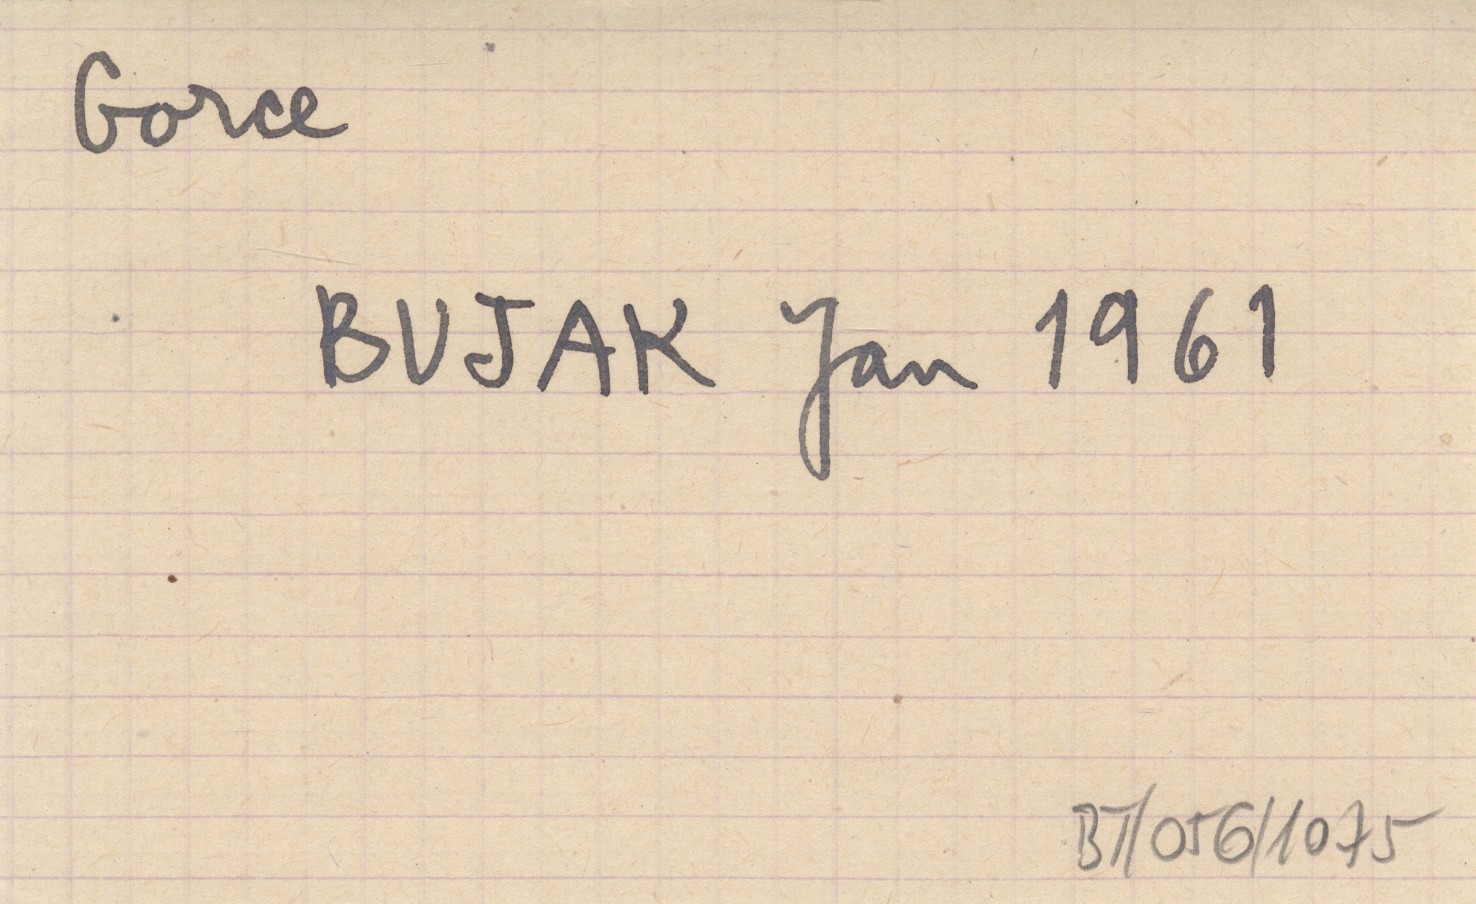 Gorce
BUJAK Jan 1961
BT/056/1075